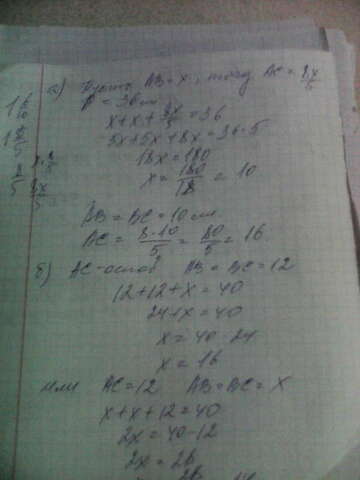 а) Пусть AB = x, тогда AC = 8x/5
P = 36 см
x + x + 8x/5 = 36
5x + 5x + 8x = 36 · 5
18x = 180
x = 180/18 = 10
AB = BC = 10 см.
AC = 8·10/5 = 80/5 = 16
б) AC - основ AB = BC = 12
12 + 12 + x = 40
24 + x = 40
x = 40 - 24
x = 16
или AC = 12 AB = BC = x
x + x + 12 = 40
2x = 40 - 12
2x = 28